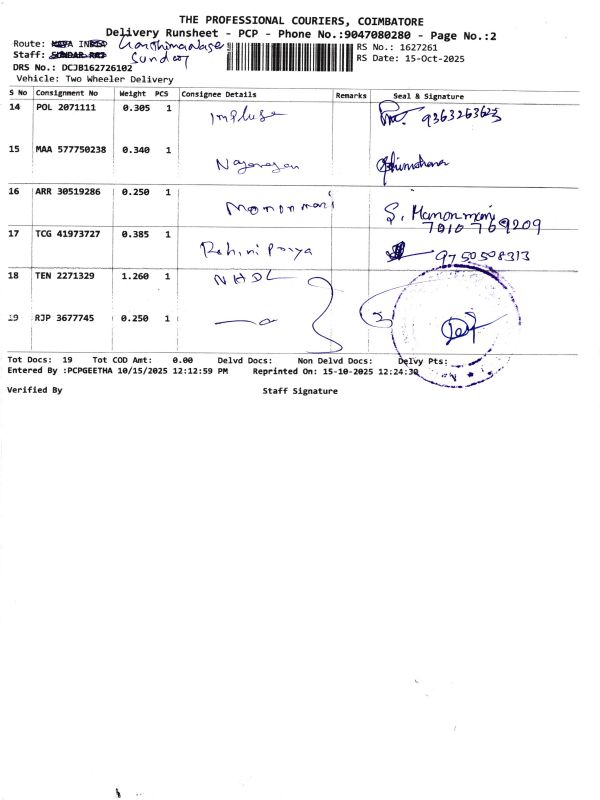 THE PROFESSIONAL COURIERS, COIMBATORE
Delivery Runsheet - PCP - Phone No.:9047080280 - Page No.:2
Route:
RS No.: 1627261
Staff: Sundar
RS Date: 15-Oct-2025
DRS No.: DCJB162726102
Vehicle: Two Wheeler Delivery
S No Consignment No Weight PCS Consignee Details Remarks Seal & Signature
14 POL 2071111 0.305 1 Impluse 9363263623
15 MAA 577750238 0.340 1 Nagarajan
16 ARR 30519286 0.250 1 Manonmani S. Manonmani
7010769209
17 TCG 41973727 0.385 1 Rohini Priya 9750508313
18 TEN 2271329 1.260 1 NHDL
19 RJP 3677745 0.250 1
Tot Docs: 19 Tot COD Amt: 0.00 Delvd Docs: Non Delvd Docs: Delvy Pts:
Entered By :PCPGEETHA 10/15/2025 12:12:59 PM Reprinted On: 15-10-2025 12:24:30
Verified By Staff Signature